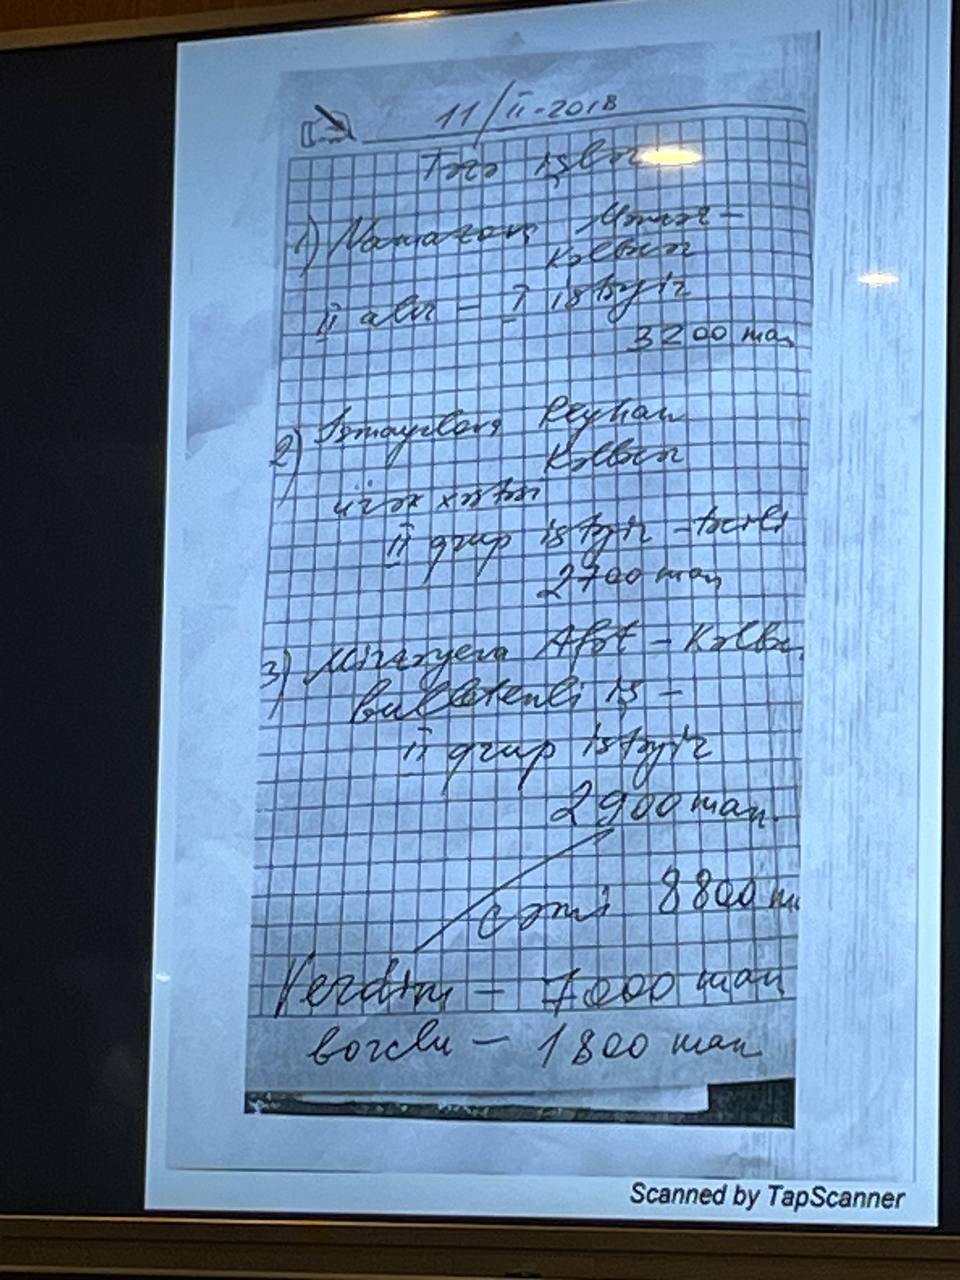 11/II-2018
Təzə işlər
1) Namazov
Kəlbəcər
II alır - I istəyir
3200 man
2) İsmayılova Reyhan
Kəlbəcər
ürək xəstəsi
II qrup istəyir -
2700 man
3) Afət - Kəlbə
bulletenli iş -
II qrup istəyir
2900 man.
cəmi 8800 m
Verdim - 7000 man
borclu - 1800 man
Scanned by TapScanner